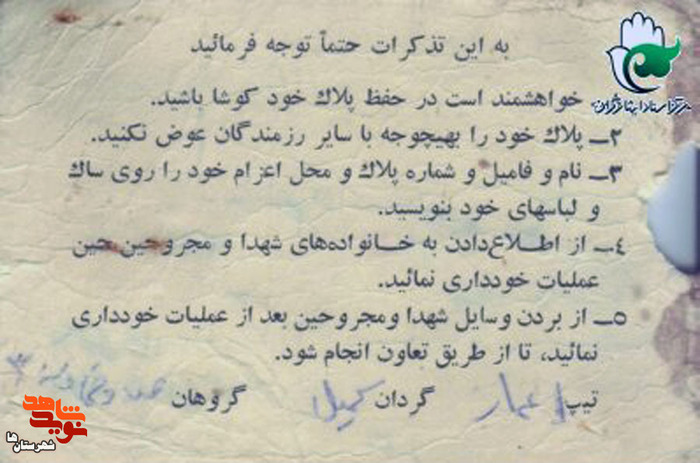 به این تذکرات حتماً توجه فرمائید
خواهشمند است در حفظ پلاك خود کوشا باشید.
۲ـ پلاك خود را بهیچوجه با سایر رزمندگان عوض نکنید.
۳ـ نام و فامیل و شماره پلاك و محل اعزام خود را روی ساك
و لباسهای خود بنویسید.
۴ـ از اطلاع‌دادن به خانواده‌های شهدا و مجروحین حین
عملیات خودداری نمائید.
۵ـ از بردن وسایل شهدا ومجروحین بعد از عملیات خودداری
نمائید، تا از طریق تعاون انجام شود.
تیپ عمار گردان کمیل گروهان
مرکز اسناد ایثارگران
نوید شاهد
شهرستان‌ها